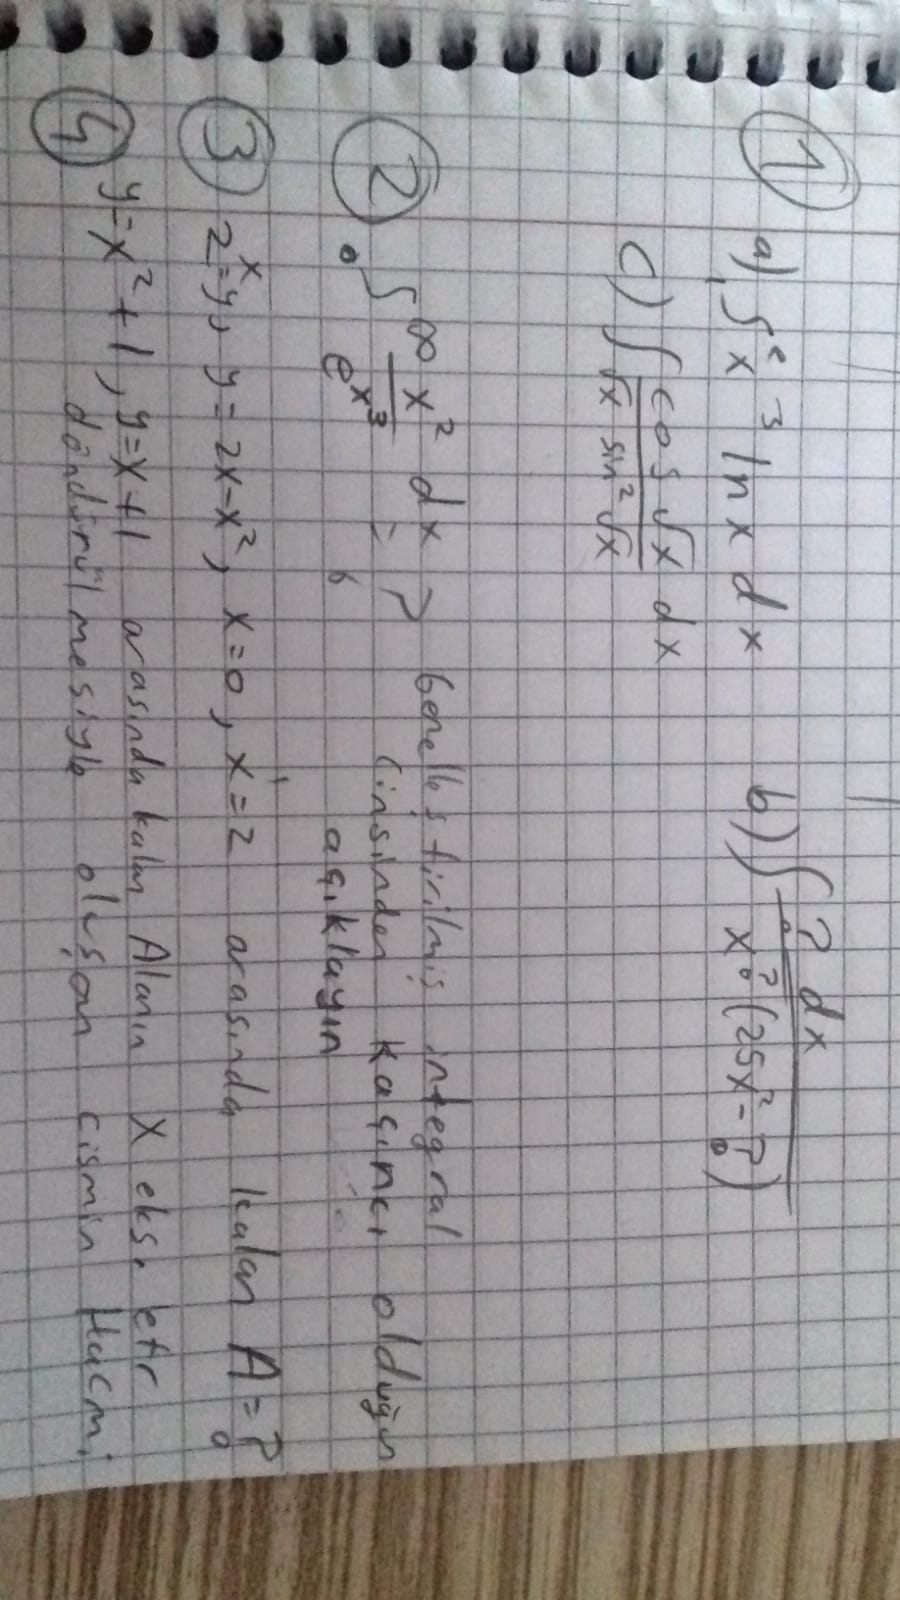 1
a) ∫₁ᵉ x³ ln x dx b) ∫ ? dx / x^? (25x² - ?)
c) ∫ cos √x / √x sin² √x dx
2 ∫₀^∞ x² / e^(x³) dx = ? Genelleştirilmiş integral
cinsinden kaçıncı olduğun
açıklayın
3 2^x = y, y = 2x - x², x = 0, x = 2 arasında kalan A = ?
4 y = x² + 1, y = x + 1 arasında kalan Alanın X eks. etr
döndürülmesiyle oluşan cismin Hacmi